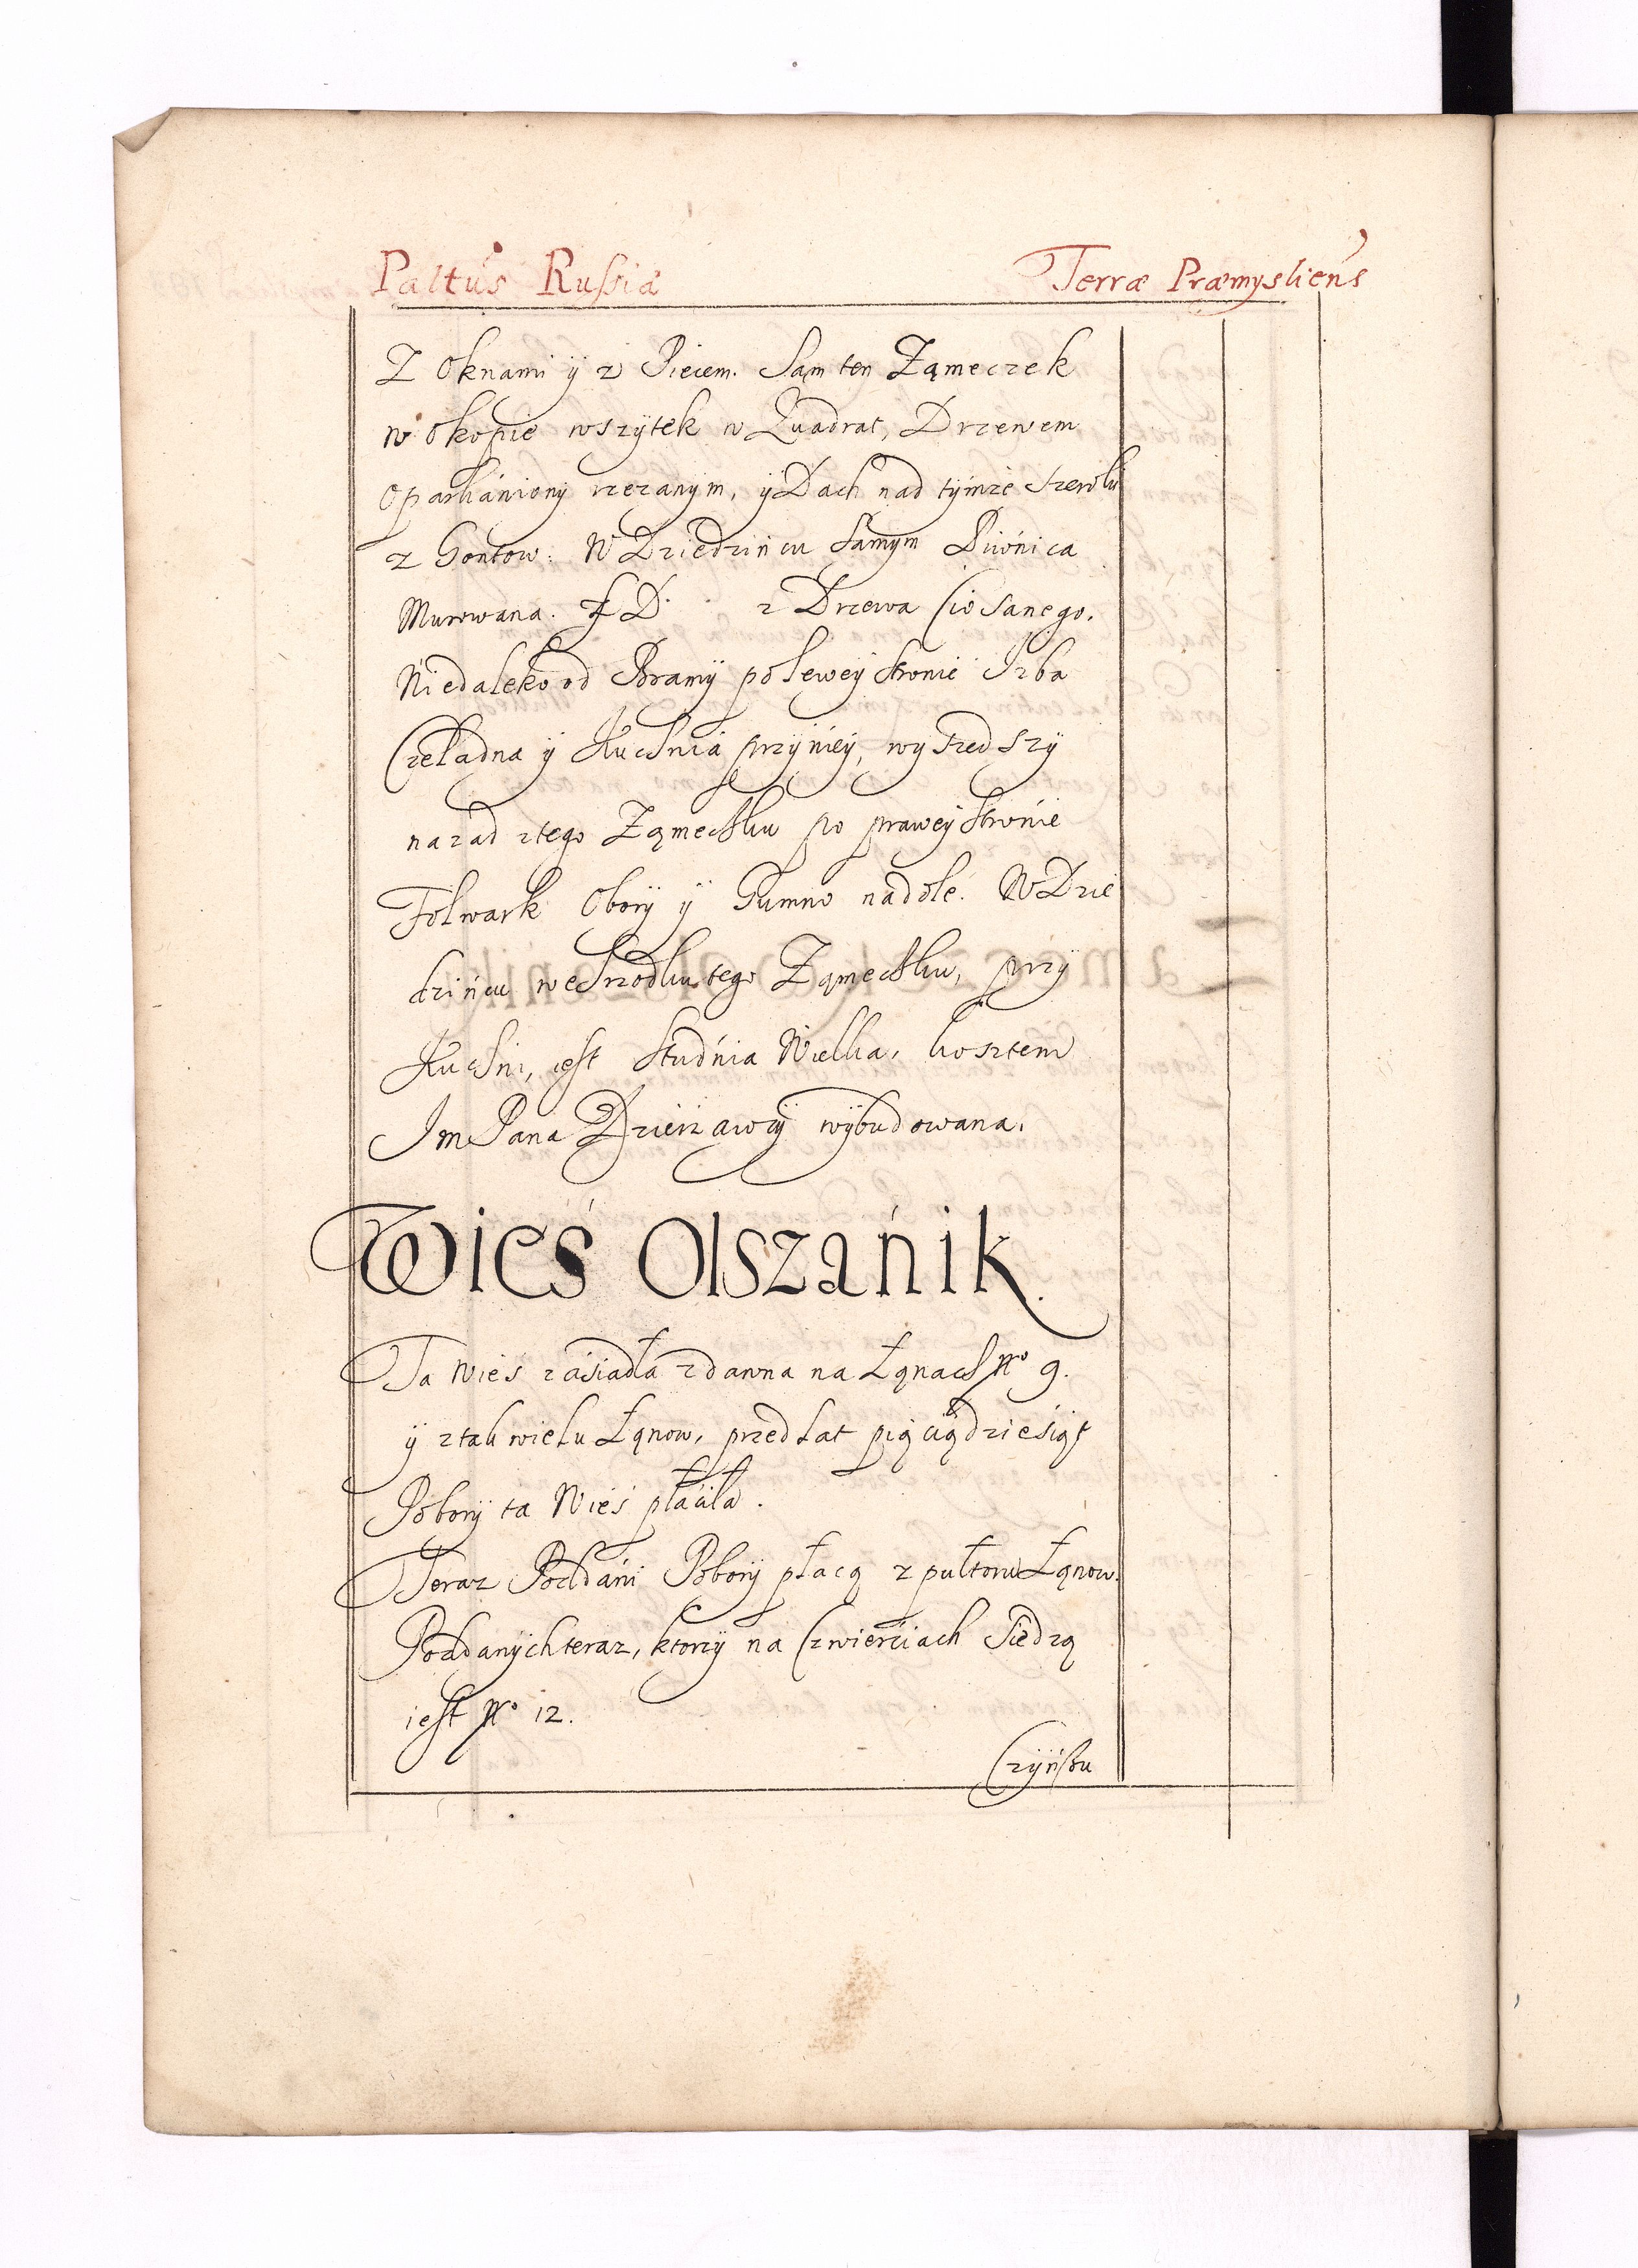 Paltus Russiæ Terræ Præmysliens
Z Oknami ÿ z Piecem. Sam ten Zameczek
w okopie wszÿtek w Quadrat, Drzewem
oparkaniony rzezanym, ÿ Dach nad tÿmże szeroki
z Gontow. W Dziedzińcu samym Piwnica
Murowana. z Drzewa Ciosanego.
Niedaleko od Bramÿ po lewey stronie Izba
Czeladna ÿ Kuchnia przÿ niey, wyszedszÿ
nazad z tego Zameczku po prawey stronie
Folwark Oborÿ ÿ Gumno na dole. W Dzie
dzińcu we srzodku tego Zameczku, przÿ
Kuchni, iest studnia Wielka, kosztem
Im Pana Dzierzawcÿ wÿbudowana.
Wieś Olszanik.
Ta Wieś zasiadła zdawna na Łąnach No 9.
ÿ z tak wielu Łąnow, przed lat pięcią dziesiąt
Poborÿ ta Wieś płaciła.
Teraz Poddani Poborÿ płacą z pułtoru Łąnow.
Poddanÿch teraz, ktorzÿ na Czwierciach Siedzą
iest No 12.
Czÿńszu